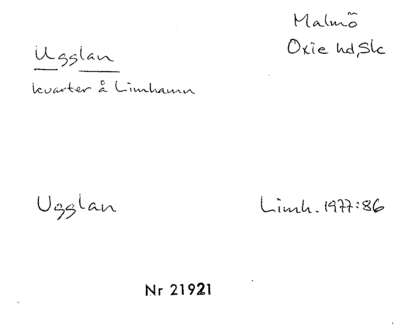 Malmö
Ugglan
Oxie hd, Sk
kvarter å Limhamn
Ugglan
Limh. 1977:86
Nr 21921